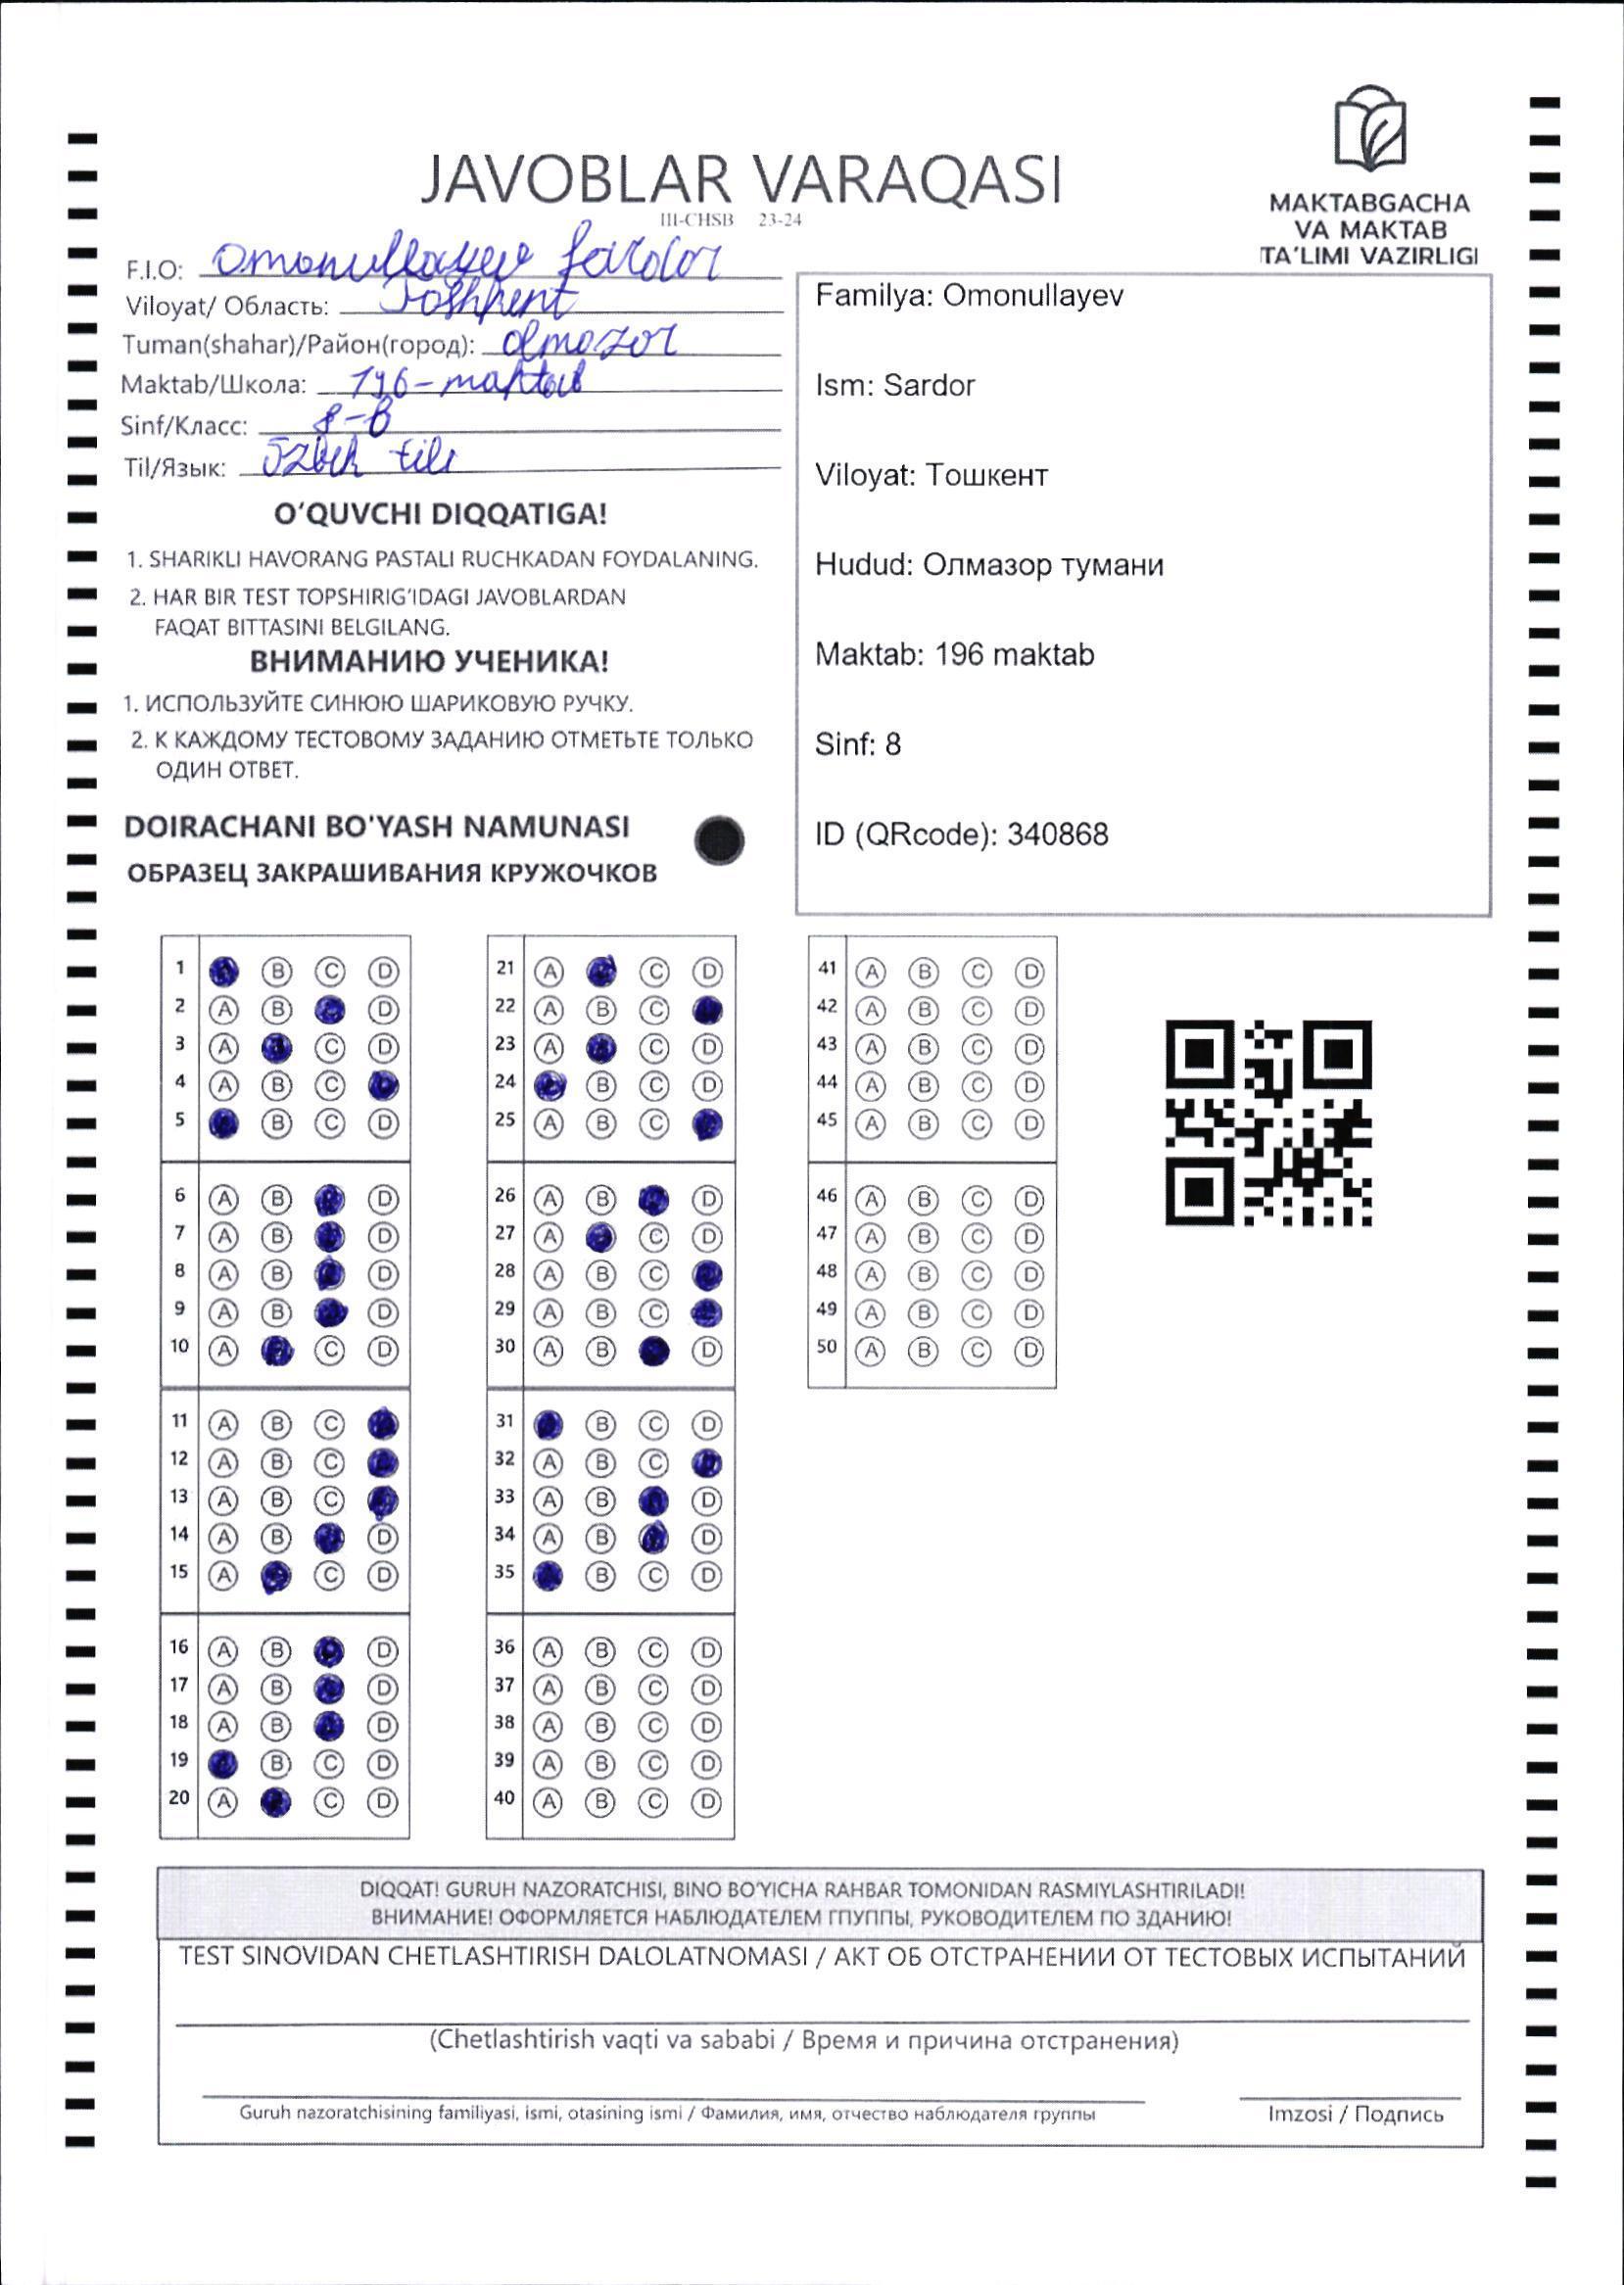 JAVOBLAR VARAQASI
III-CHSB 23-24
MAKTABGACHA
VA MAKTAB
TA'LIMI VAZIRLIGI
F.I.O: Omonullayev Sardor
Viloyat/ Область: Toshkent
Tuman(shahar)/Район(город): olmazor
Maktab/Школа: 196-maktab
Sinf/Класс: 8-B
Til/Язык: Ozbek tili
O'QUVCHI DIQQATIGA!
1. SHARIKLI HAVORANG PASTALI RUCHKADAN FOYDALANING.
2. HAR BIR TEST TOPSHIRIG'IDAGI JAVOBLARDAN
FAQAT BITTASINI BELGILANG.
ВНИМАНИЮ УЧЕНИКА!
1. ИСПОЛЬЗУЙТЕ СИНЮЮ ШАРИКОВУЮ РУЧКУ.
2. К КАЖДОМУ ТЕСТОВОМУ ЗАДАНИЮ ОТМЕТЬТЕ ТОЛЬКО
ОДИН ОТВЕТ.
DOIRACHANI BO'YASH NAMUNASI
ОБРАЗЕЦ ЗАКРАШИВАНИЯ КРУЖОЧКОВ
Familya: Omonullayev
Ism: Sardor
Viloyat: Тошкент
Hudud: Олмазор тумани
Maktab: 196 maktab
Sinf: 8
ID (QRcode): 340868
1 B C D
2 A B D
3 A C D
4 A B C
5 B C D
6 A B D
7 A B D
8 A B D
9 A B D
10 A C D
11 A B C
12 A B C
13 A B C
14 A B D
15 A C D
16 A B D
17 A B D
18 A B D
19 B C D
20 A C D
21 A C D
22 A B C
23 A C D
24 B C D
25 A B C
26 A B D
27 A C D
28 A B C
29 A B C
30 A B D
31 B C D
32 A B C
33 A B D
34 A B D
35 B C D
36 A B C D
37 A B C D
38 A B C D
39 A B C D
40 A B C D
41 A B C D
42 A B C D
43 A B C D
44 A B C D
45 A B C D
46 A B C D
47 A B C D
48 A B C D
49 A B C D
50 A B C D
DIQQAT! GURUH NAZORATCHISI, BINO BO'YICHA RAHBAR TOMONIDAN RASMIYLASHTIRILADI!
ВНИМАНИЕ! ОФОРМЛЯЕТСЯ НАБЛЮДАТЕЛЕМ ГПУППЫ, РУКОВОДИТЕЛЕМ ПО ЗДАНИЮ!
TEST SINOVIDAN CHETLASHTIRISH DALOLATNOMASI / АКТ ОБ ОТСТРАНЕНИИ ОТ ТЕСТОВЫХ ИСПЫТАНИЙ
(Chetlashtirish vaqti va sababi / Время и причина отстранения)
Guruh nazoratchisining familiyasi, ismi, otasining ismi / Фамилия, имя, отчество наблюдателя группы
Imzosi / Подпись